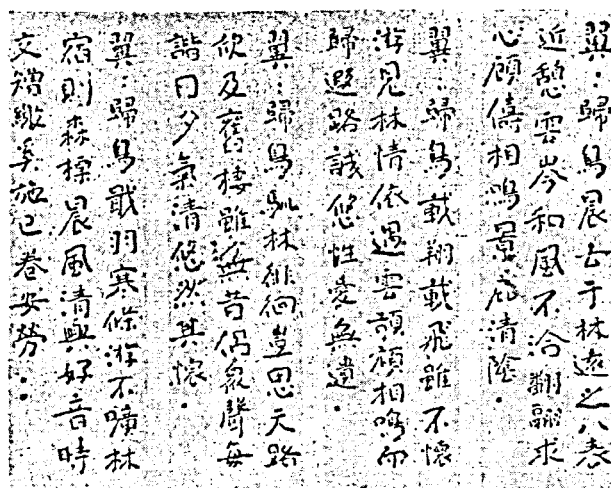 翼：歸鳥晨去于林遠之八表
近憩雲岑和風不洽翻翮求
心顧儔相鳴景庇清陰．
翼：歸鳥載翔載飛雖不懷
游見林情依遇雲頡頏相鳴而
歸遐路誠悠性愛無遺．
翼：歸鳥馴林徘徊豈思天路
欣及舊棲雖無昔侶衆聲每
諧日夕氣清悠然其懷．
翼：歸鳥戢羽寒條游不曠林
宿則森標晨風清興好音時
交矰繳奚施已卷安勞：